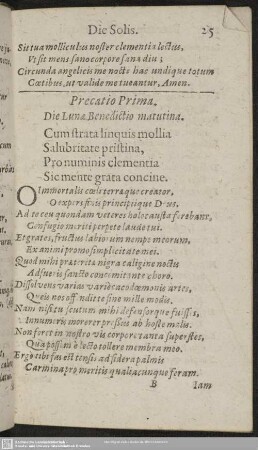 Die Solis. 25
Sis tua molliculus noster clementia lectus,
Vt sit mens sano corpore sana diu;
Circunda angelicis me noctu hac undique totum
Cœtibus, ut valide me tueantur, Amen.
Precatio Prima.
Die Lunæ Benedictio matutina.
Cum strata linquis mollia
Salubritate pristina,
Pro numinis clementia
Sic mente grata concine.
O Immortalis cœli terræque creator,
O expers finis principiique Deus.
Ad te ceu quondam veteres holocausta ferebant,
Confugio meriti perpete laude tui.
Et grates, fructus labiorum nempe meorum,
Ex animi promo simplicitate mei.
Quod mihi præterita nigra caligine noctis
Adfueris sancto concomitante choro.
Dissolvens varias varie cacodæmonis artes,
Queis nos offendit sine mille modis.
Nam nisi tu scutum mihi defensorque fuisses,
Innumeris morerer pressus ab hoste malis.
Non foret in nostro vis corpore tanta superstes,
Qua possim è lecto tollere membra meo.
Ergo tibi fas est tensis ad sidera palmis
Carmina pro meritis qualiacunque feram.
B Iam